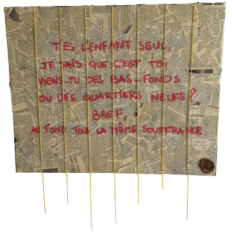 T'ES L'ENFANT SEUL,
JE SAIS QUE C'EST TOI
VIENS-TU DES BAS-FONDS
OU DES QUARTIERS NEUFS?
BREF,
AU FOND TOUS LA MÊME SOUFFRANCE.